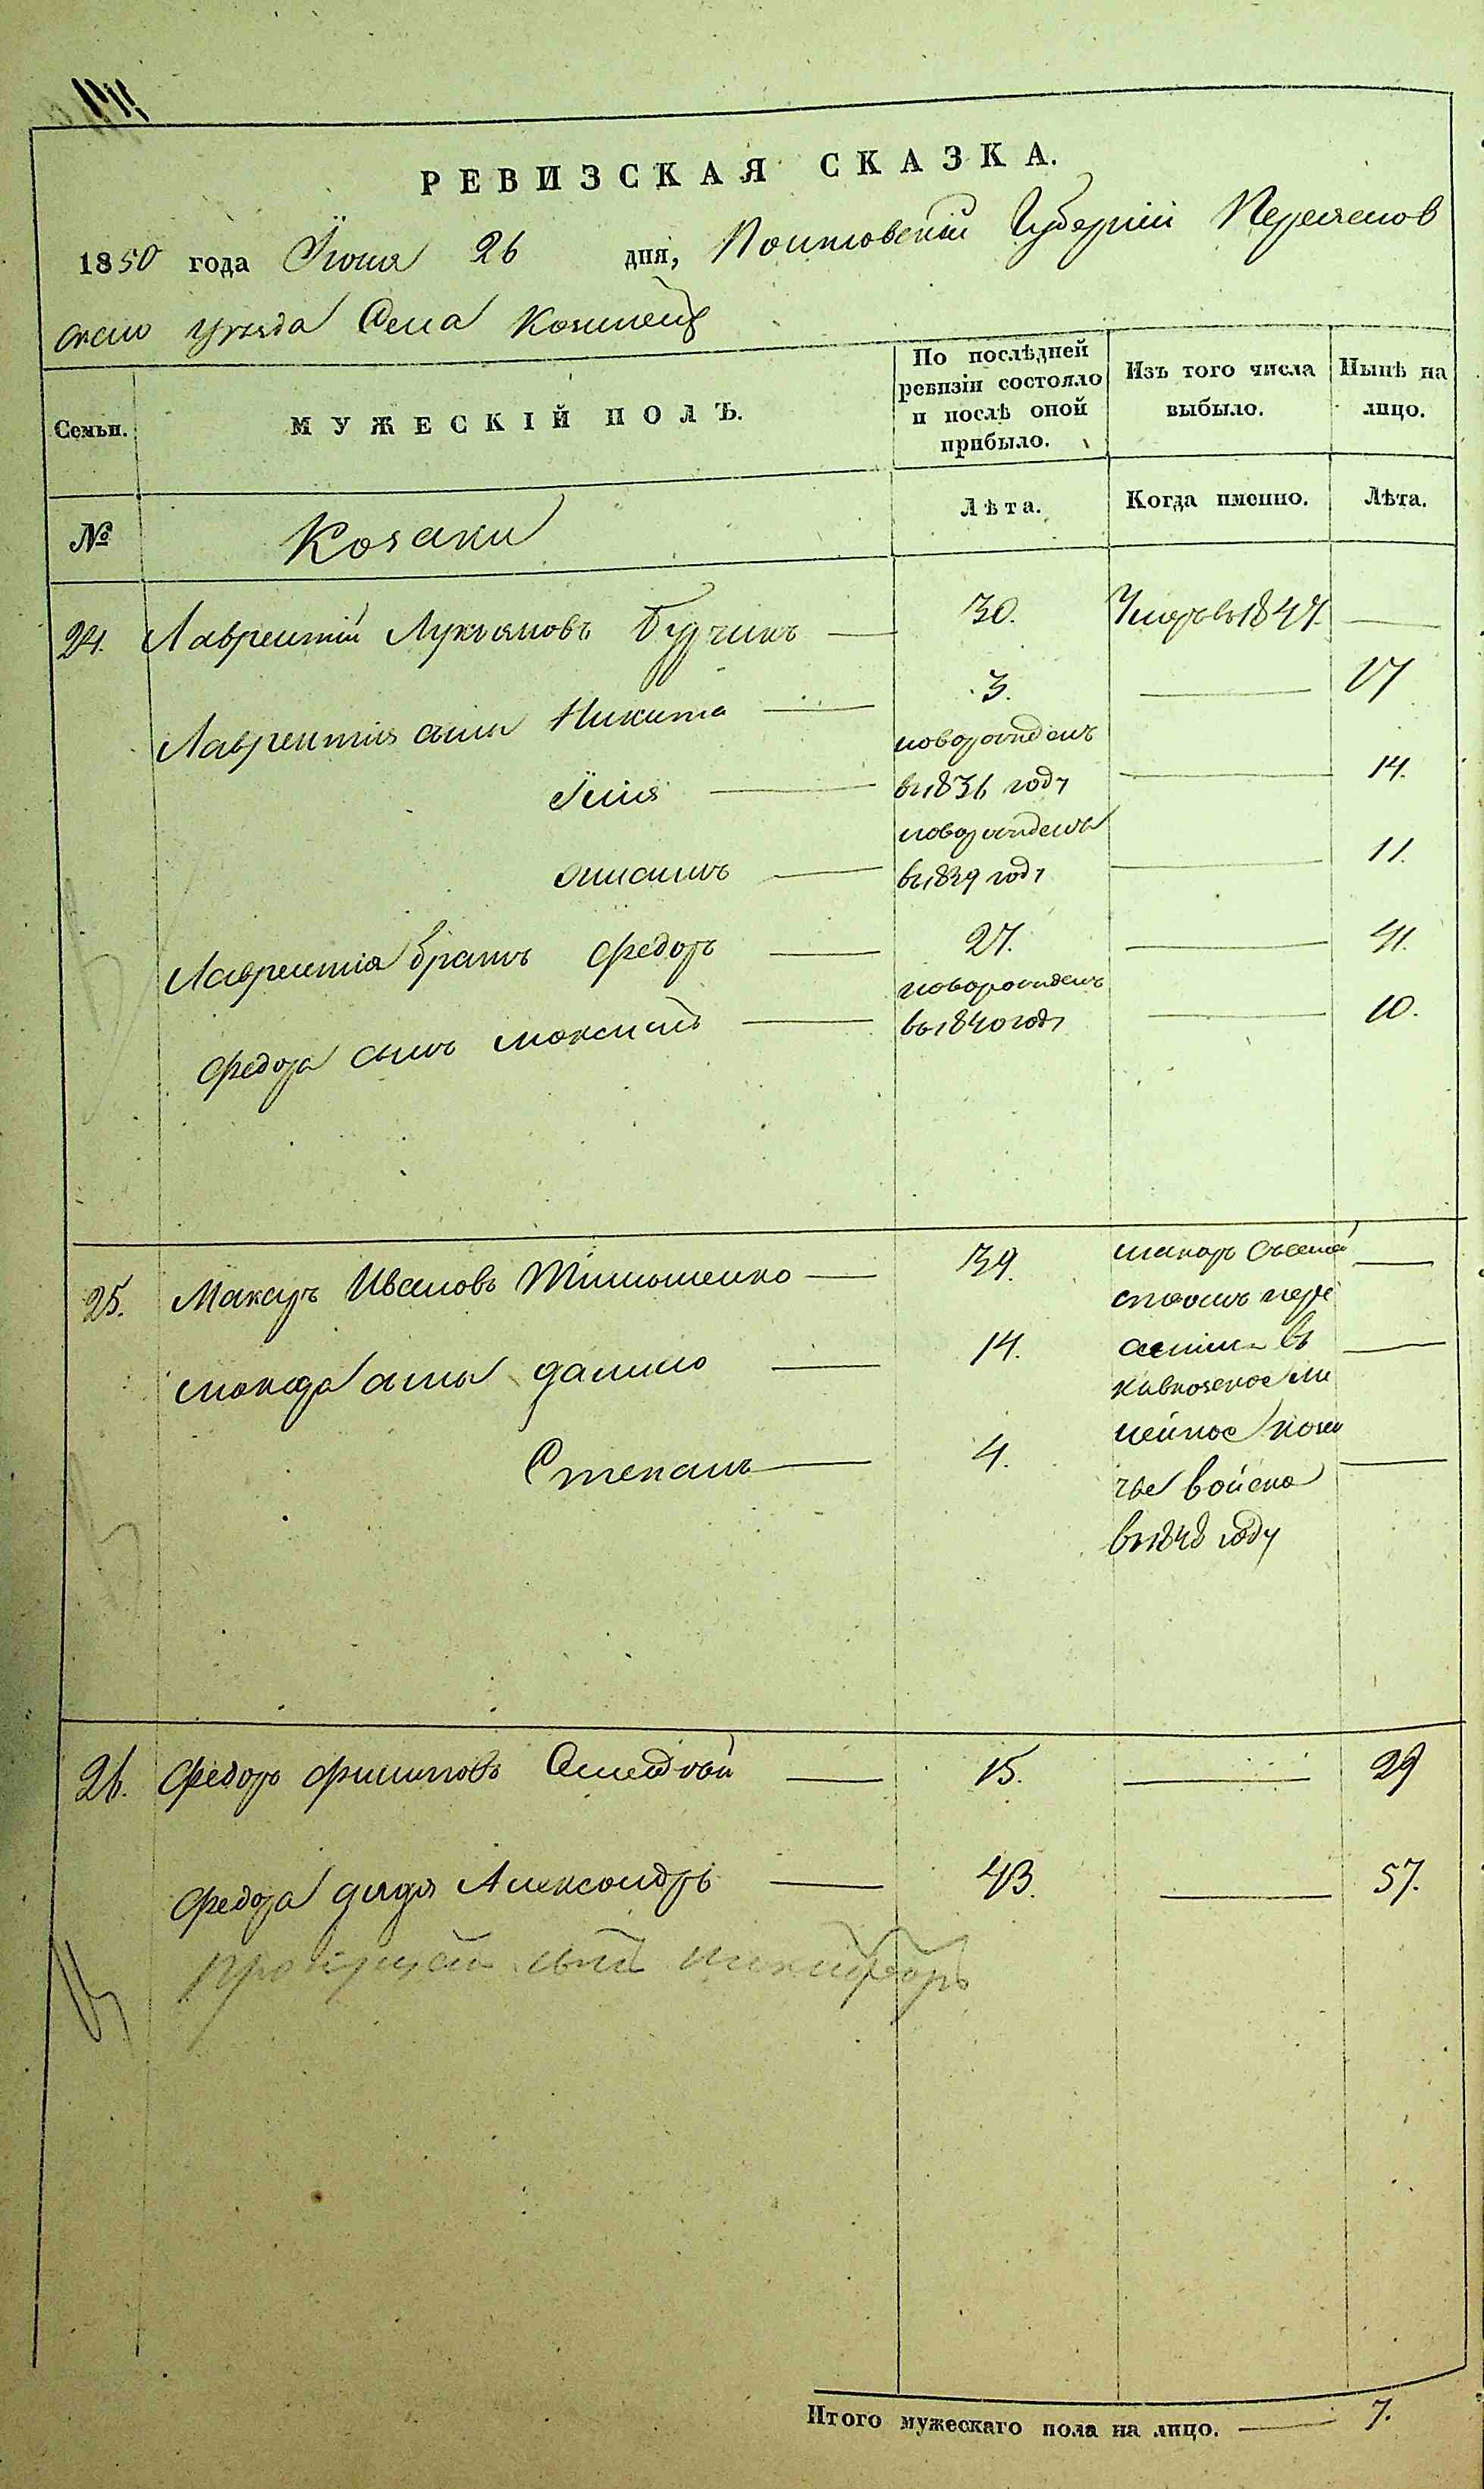 РЕВИЗСКАЯ СКАЗКА.
1850 года Июня 26 дня, Полтавской Губерніи Переяслов
скаго уезда Села
Семьи. МУЖЕСКІЙ ПОЛЪ. По послѣдней ревизіи состояло и послѣ оной прибыло. Изъ того числа выбыло. Нынѣ на лицо.
№ Козаки Лѣта. Когда именно. Лѣта.
24. Лаврентій Лукьяновъ Будникъ 30. Умеръ въ 1847.
Лаврентія сыны Никита 3. 17
новорожденъ
Илія въ 1836 году 14.
новорожденъ
въ 1839 году 11.
Лаврентія братъ Федоръ 27. 41.
новорожденъ
Федора сынъ Максимъ въ 1840 году 10.
25. Макаръ Ивановъ Тимошенко 39. Макаръ съ семей
ствомъ пере
Макара сыны Данило 14. въ
Кавказское ли
нейное коза
Степанъ 4. чье войско
въ 1848 году
26. Федоръ Филиповъ 15. 29
Федора дядя Александръ 43. 57.
сынъ Никифоръ
Итого мужескаго пола на лицо. 7.